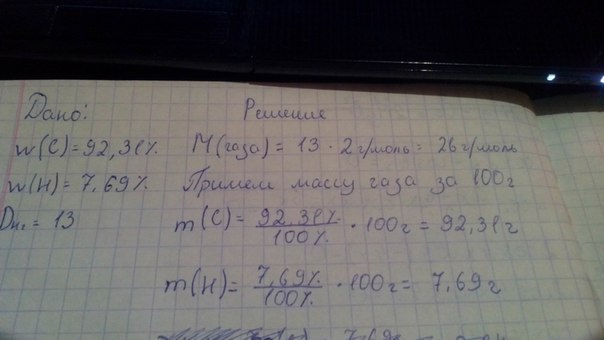 Дано: Решение
w(C)=92,31%. M(газа) = 13 · 2 г/моль = 26 г/моль
w(H)=7,69%. Примем массу газа за 100г
D H₂ = 13 m(C) = 92,31% / 100% · 100г = 92,31г
m(H) = 7,69% / 100% · 100г = 7,69г